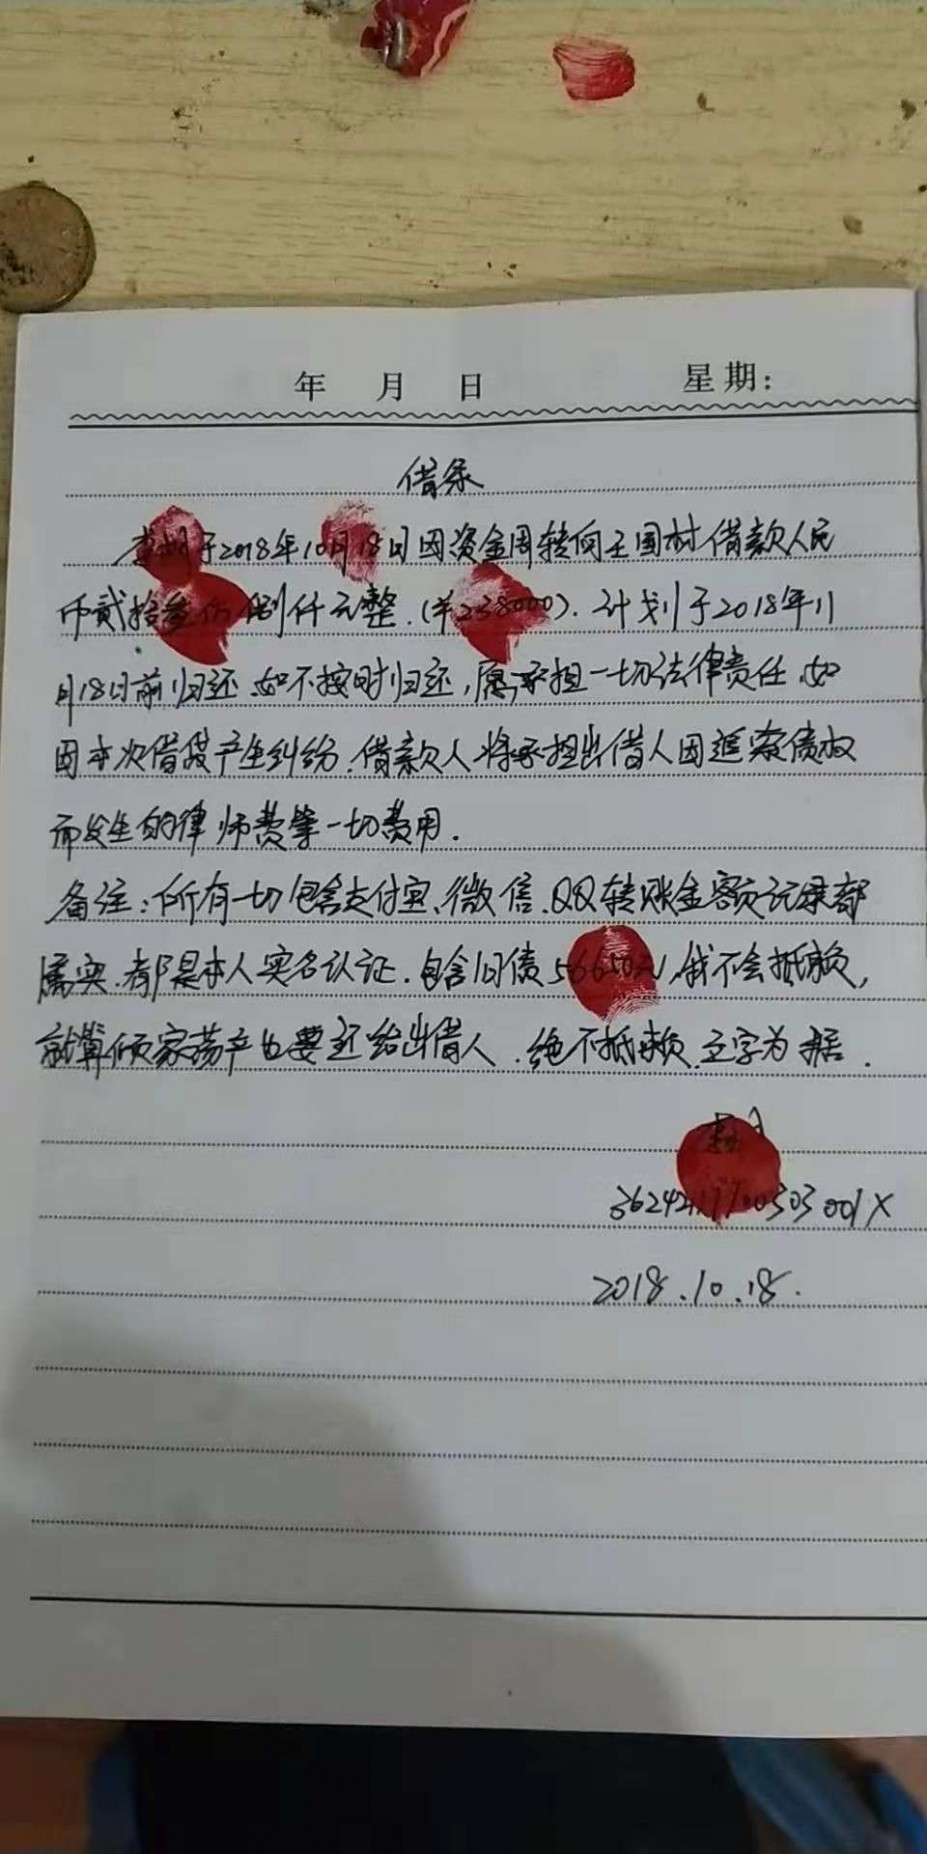 年 月 日 星期:
借条
于2018年10月18日因资金周转向王国材借款人民
币贰拾叁万捌仟元整.(¥238000).计划于2018年11
月18日前归还.如不按时归还,愿承担一切法律责任.如
因本次借段产生纠纷.借款人将承担出借人因追索债权
而发生的律师费等一切费用.
备注:所有一切包含支付宝、微信、QQ转账金额记录都
属实.都是本人实名认证.包含旧债 元,我不会抵赖,
就算倾家荡产也要还给出借人.绝不抵赖.立字为据.
2018.10.18.